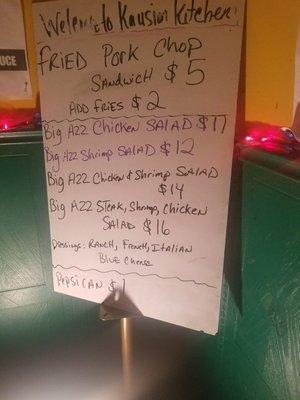 UCE
Welcome to Kausion Kitchen
FRIED Pork Chop
SANDWICH $5
ADD FRIES $2
Big AZZ Chicken SALAD $11
Big AZZ Shrimp SALAD $12
Big AZZ Chicken & Shrimp SALAD
$14
Big AZZ Steak, Shrimp, Chicken
SALAD $16
Dressings: Ranch, French, Italian
Blue Cheese
Pepsi CAN $1